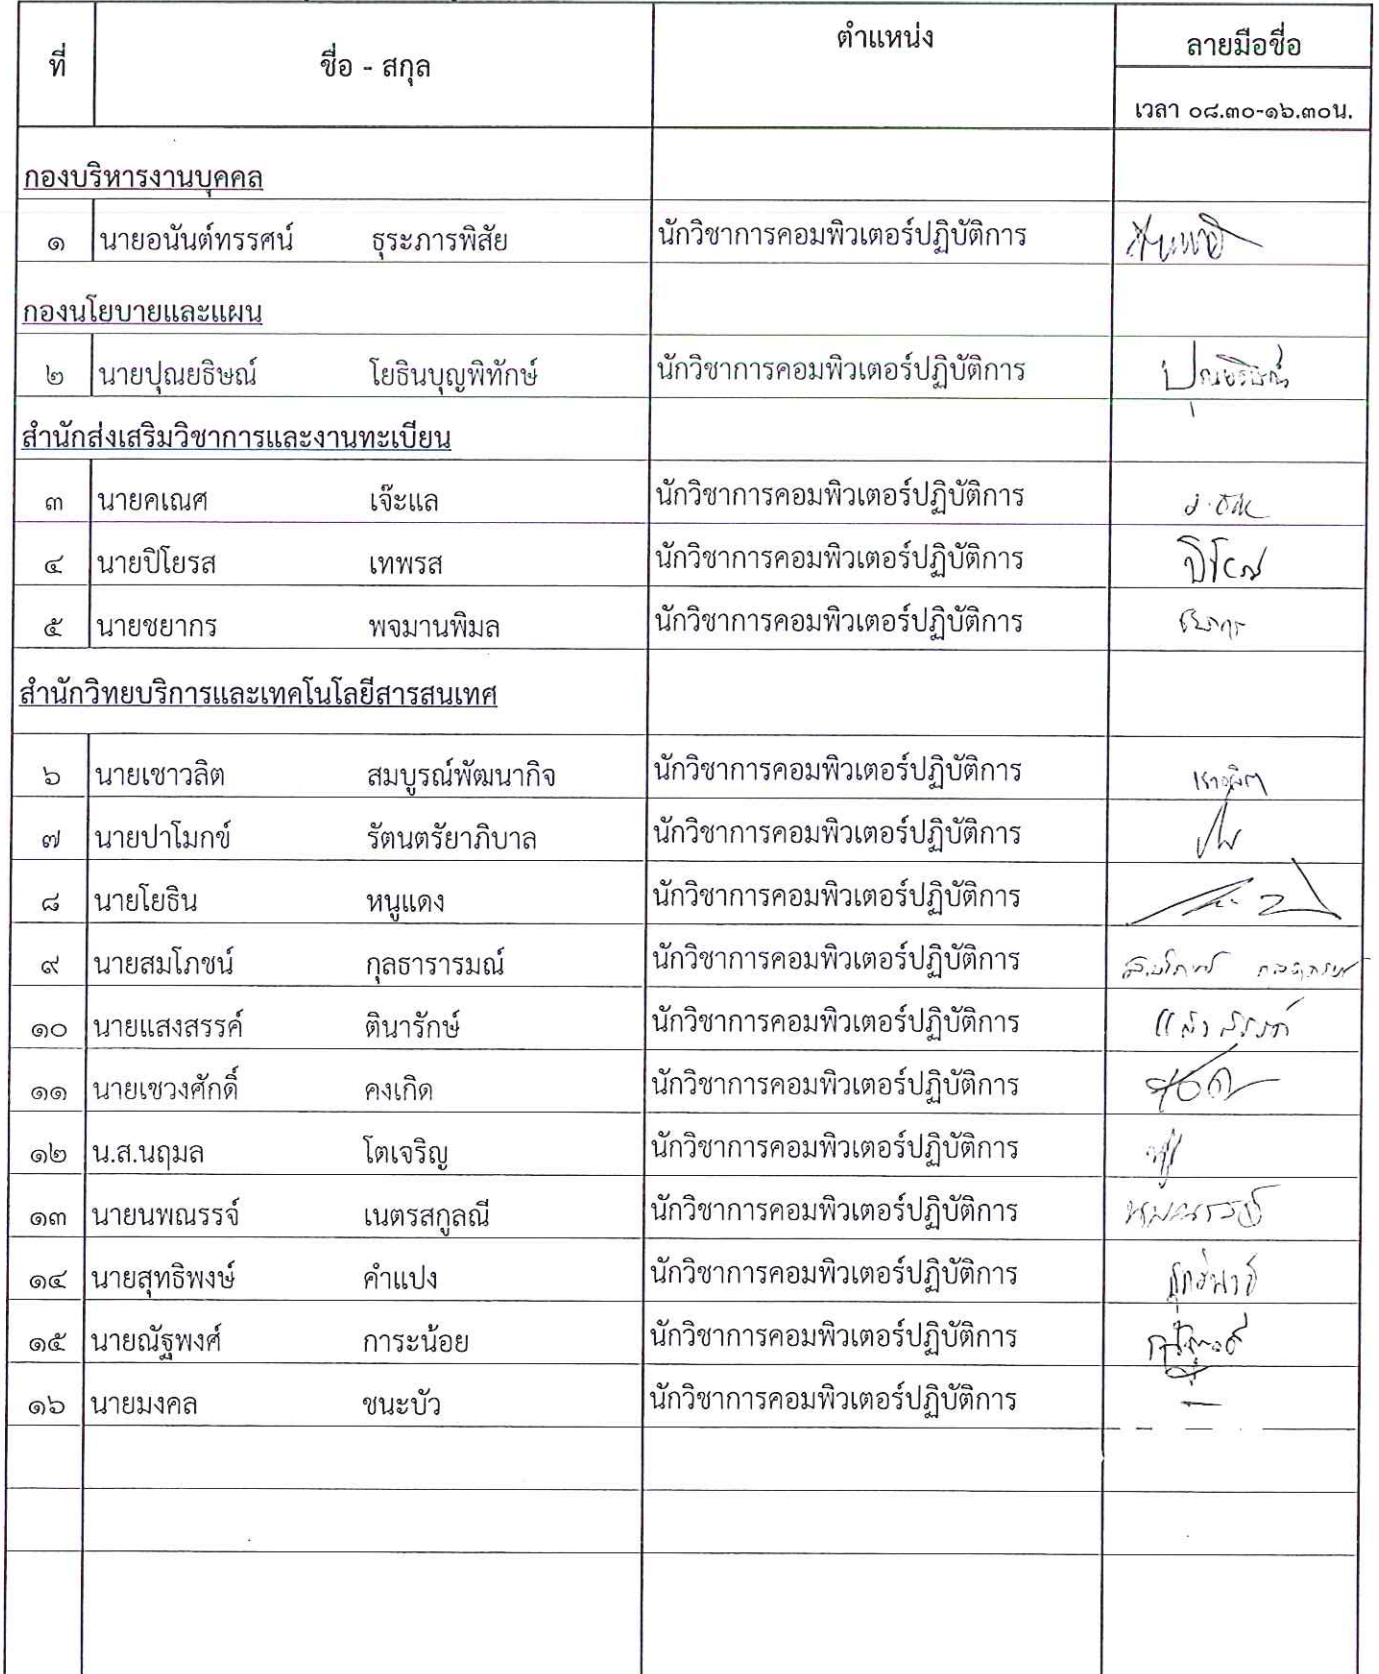 ที่ ชื่อ - สกุล ตำแหน่ง ลายมือชื่อ
เวลา ๐๘.๓๐-๑๖.๓๐น.
กองบริหารงานบุคคล
๑ นายอนันต์ทรรศน์ ธุระภารพิสัย นักวิชาการคอมพิวเตอร์ปฏิบัติการ
กองนโยบายและแผน
๒ นายปุณยธิษณ์ โยธินบุญพิทักษ์ นักวิชาการคอมพิวเตอร์ปฏิบัติการ ปุณยธิษณ์
สำนักส่งเสริมวิชาการและงานทะเบียน
๓ นายคเณศ เจ๊ะแล นักวิชาการคอมพิวเตอร์ปฏิบัติการ
๔ นายปิโยรส เทพรส นักวิชาการคอมพิวเตอร์ปฏิบัติการ ปิโยรส
๕ นายชยากร พจมานพิมล นักวิชาการคอมพิวเตอร์ปฏิบัติการ ชยากร
สำนักวิทยบริการและเทคโนโลยีสารสนเทศ
๖ นายเชาวลิต สมบูรณ์พัฒนากิจ นักวิชาการคอมพิวเตอร์ปฏิบัติการ เชาวลิต
๗ นายปาโมกข์ รัตนตรัยาภิบาล นักวิชาการคอมพิวเตอร์ปฏิบัติการ
๘ นายโยธิน หนูแดง นักวิชาการคอมพิวเตอร์ปฏิบัติการ
๙ นายสมโภชน์ กุลธารารมณ์ นักวิชาการคอมพิวเตอร์ปฏิบัติการ สมโภชน์ กุลธารารมณ์
๑๐ นายแสงสรรค์ ตินารักษ์ นักวิชาการคอมพิวเตอร์ปฏิบัติการ แสงสรรค์
๑๑ นายเชวงศักดิ์ คงเกิด นักวิชาการคอมพิวเตอร์ปฏิบัติการ
๑๒ น.ส.นฤมล โตเจริญ นักวิชาการคอมพิวเตอร์ปฏิบัติการ
๑๓ นายนพณรรจ์ เนตรสกูลณี นักวิชาการคอมพิวเตอร์ปฏิบัติการ นพณรรจ์
๑๔ นายสุทธิพงษ์ คำแปง นักวิชาการคอมพิวเตอร์ปฏิบัติการ สุทธิพงษ์
๑๕ นายณัฐพงศ์ การะน้อย นักวิชาการคอมพิวเตอร์ปฏิบัติการ ณัฐพงศ์
๑๖ นายมงคล ชนะบัว นักวิชาการคอมพิวเตอร์ปฏิบัติการ —